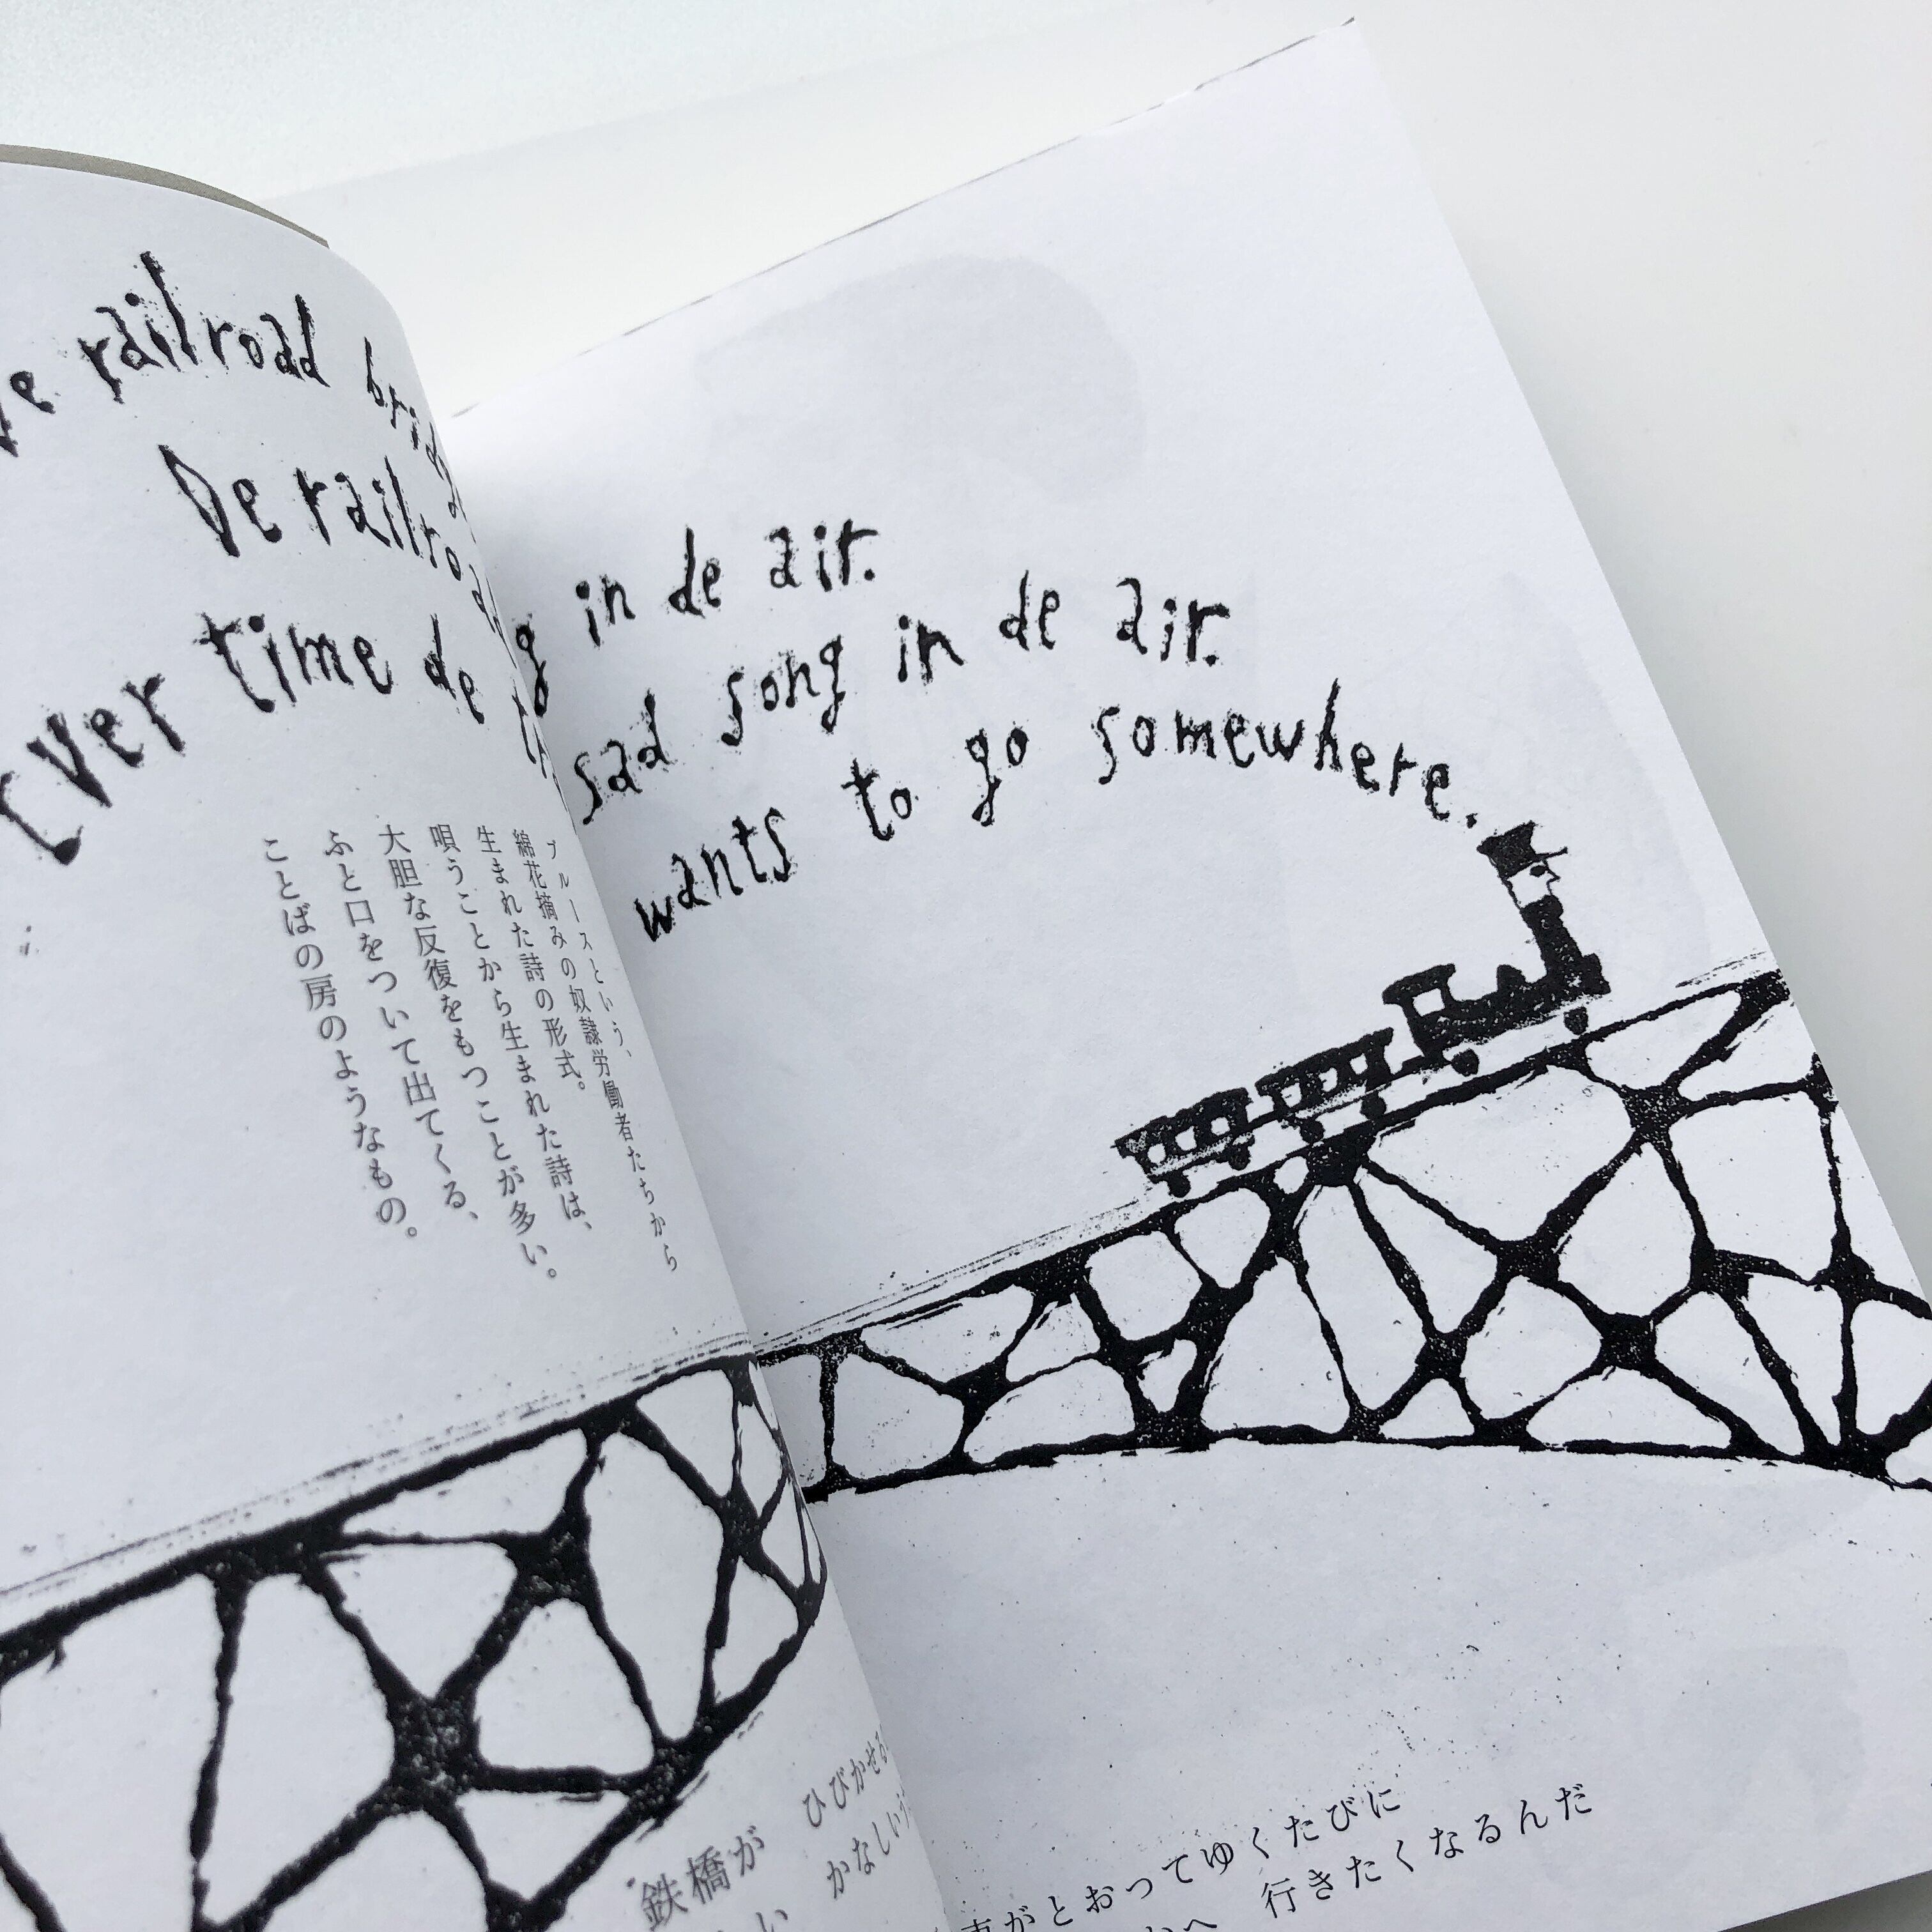 railroad
in de air.
De
sad song in de air.
Ever time de
wants to go somewhere.
ブルースという、
綿花摘みの奴隷労働者たちから
生まれた詩の形式。
唄うことから生まれた詩は、
大胆な反復をもつことが多い。
ふと口をついて出てくる、
ことばの房のようなもの。
鉄橋が ひびかせる
かなしい
がとおってゆくたびに
行きたくなるんだ